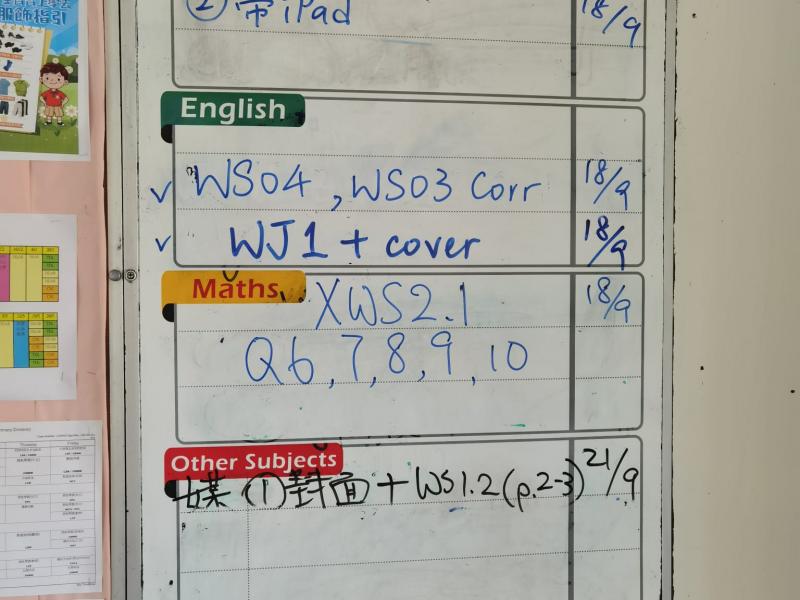 ② 帶 iPad 18/9
English
WS04, WS03 Corr 18/9
WJ1 + cover 18/9
Maths
XWS2.1 18/9
Q6, 7, 8, 9, 10
Other Subjects
① 封面 + WS1.2 (p.2-3) 21/9
服飾指引